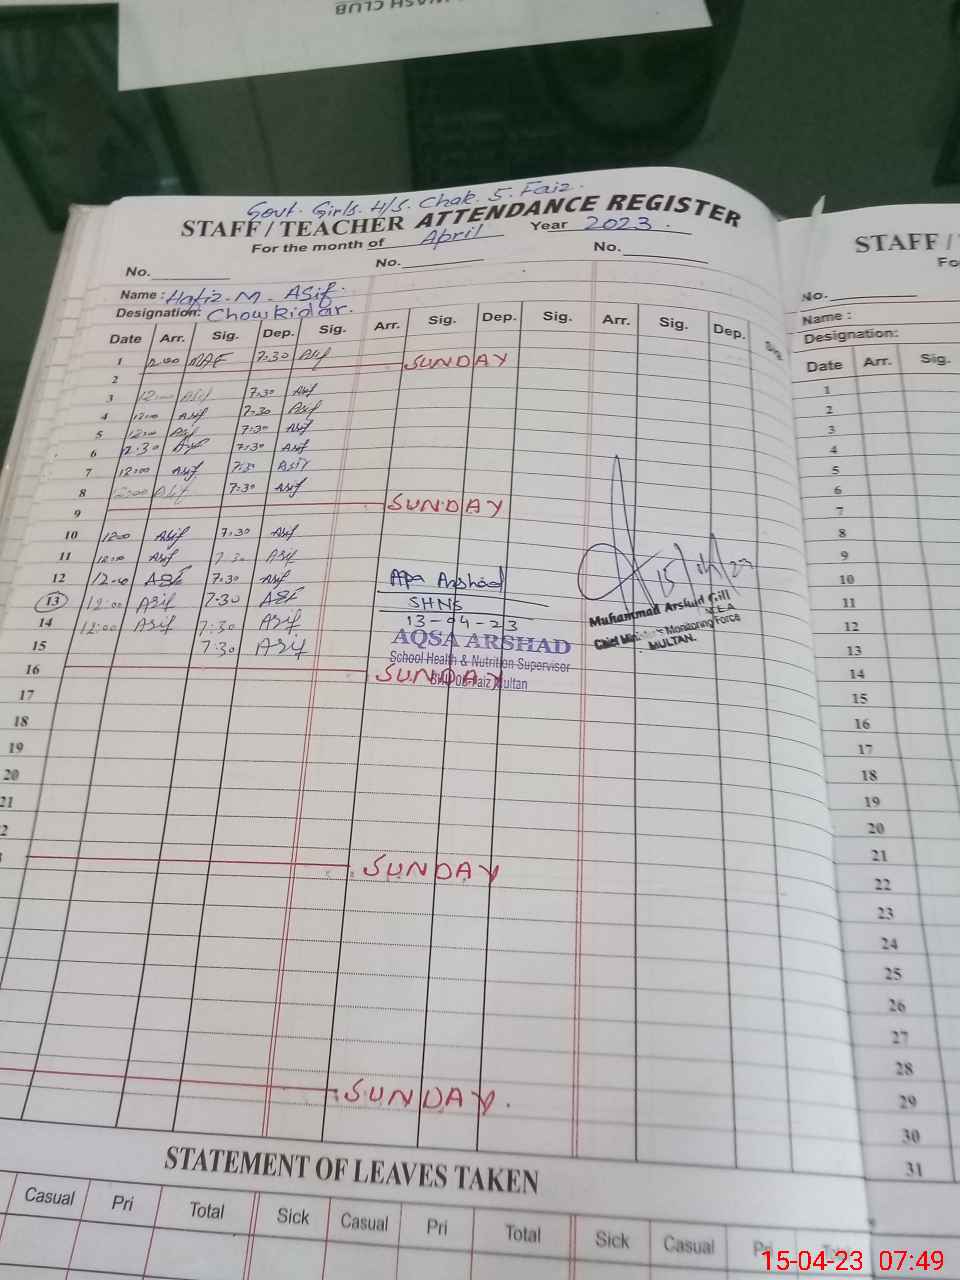 WASH CLUB
Govt. Girls. H/S. Chak. 5. Faiz.
STAFF / TEACHER ATTENDANCE REGISTER
For the month of April Year 2023.
No. No. No.
Name : Hafiz. M. Asif.
Designation: Chowkidar.
Date Arr. Sig. Dep. Sig. Arr. Sig. Dep. Sig. Arr. Sig. Dep. Sig.
1 7:30 Asif
2 SUNDAY
3 12:00 Asif 7:30 Asif
4 12:00 Asif 7:30 Asif
5 12:00 Asif 7:30 Asif
6 12:30 Asif 7:30 Asif
7 12:00 Asif 7:30 Asif
8 12:00 Asif 7:30 Asif
9 SUNDAY
10 12:00 Asif 7:30 Asif
11 12:00 Asif 7:30 Asif
12 Asif 7:30 Asif
13 12:00 Asif 7:30 Asif
14 12:00 Asif 7:30 Asif
15 7:30 Asif
16 SUNDAY
17
18
19
20
21
SUNDAY
SUNDAY.
Arshad
SHNS
13-04-23
AQSA ARSHAD
School Health & Nutrition Supervisor
Faiz Multan
15/04/23
Muhammad Arshad Gill
M.E.A
Chief Monitoring Force
MULTAN.
STATEMENT OF LEAVES TAKEN
Casual Pri Total Sick Casual Pri Total Sick Casual Pri Total
STAFF /
Fo
No.
Name :
Designation:
Date Arr. Sig.
1
2
3
4
5
6
7
8
9
10
11
12
13
14
15
16
17
18
19
20
21
22
23
24
25
26
27
28
29
30
31
15-04-23 07:49